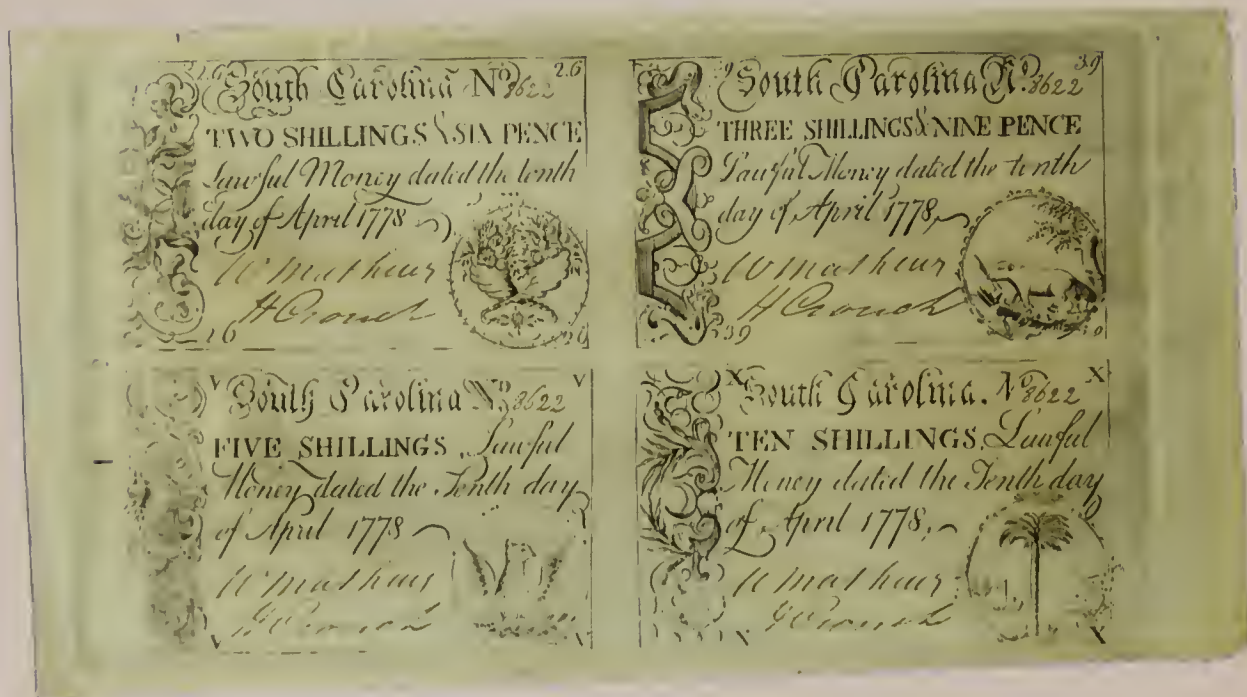 2.6 South Carolina No 8622 2.6
TWO SHILLINGS & SIX PENCE
Lawful Money dated the tenth
day of April 1778
W Mathews
H Crouch
26 26
39 South Carolina No. 8622 39
THREE SHILLINGS & NINE PENCE
Lawful Money dated the tenth
day of April 1778,
W Mathews
H Crouch
39 39
V South Carolina No 8622 V
FIVE SHILLINGS, Lawful
Money dated the Tenth day
of April 1778
W Mathews
H Crouch
V V
X South Carolina. No 8622 X
TEN SHILLINGS, Lawful
Money dated the Tenth day
of April 1778,
W Mathews
H Crouch
X X